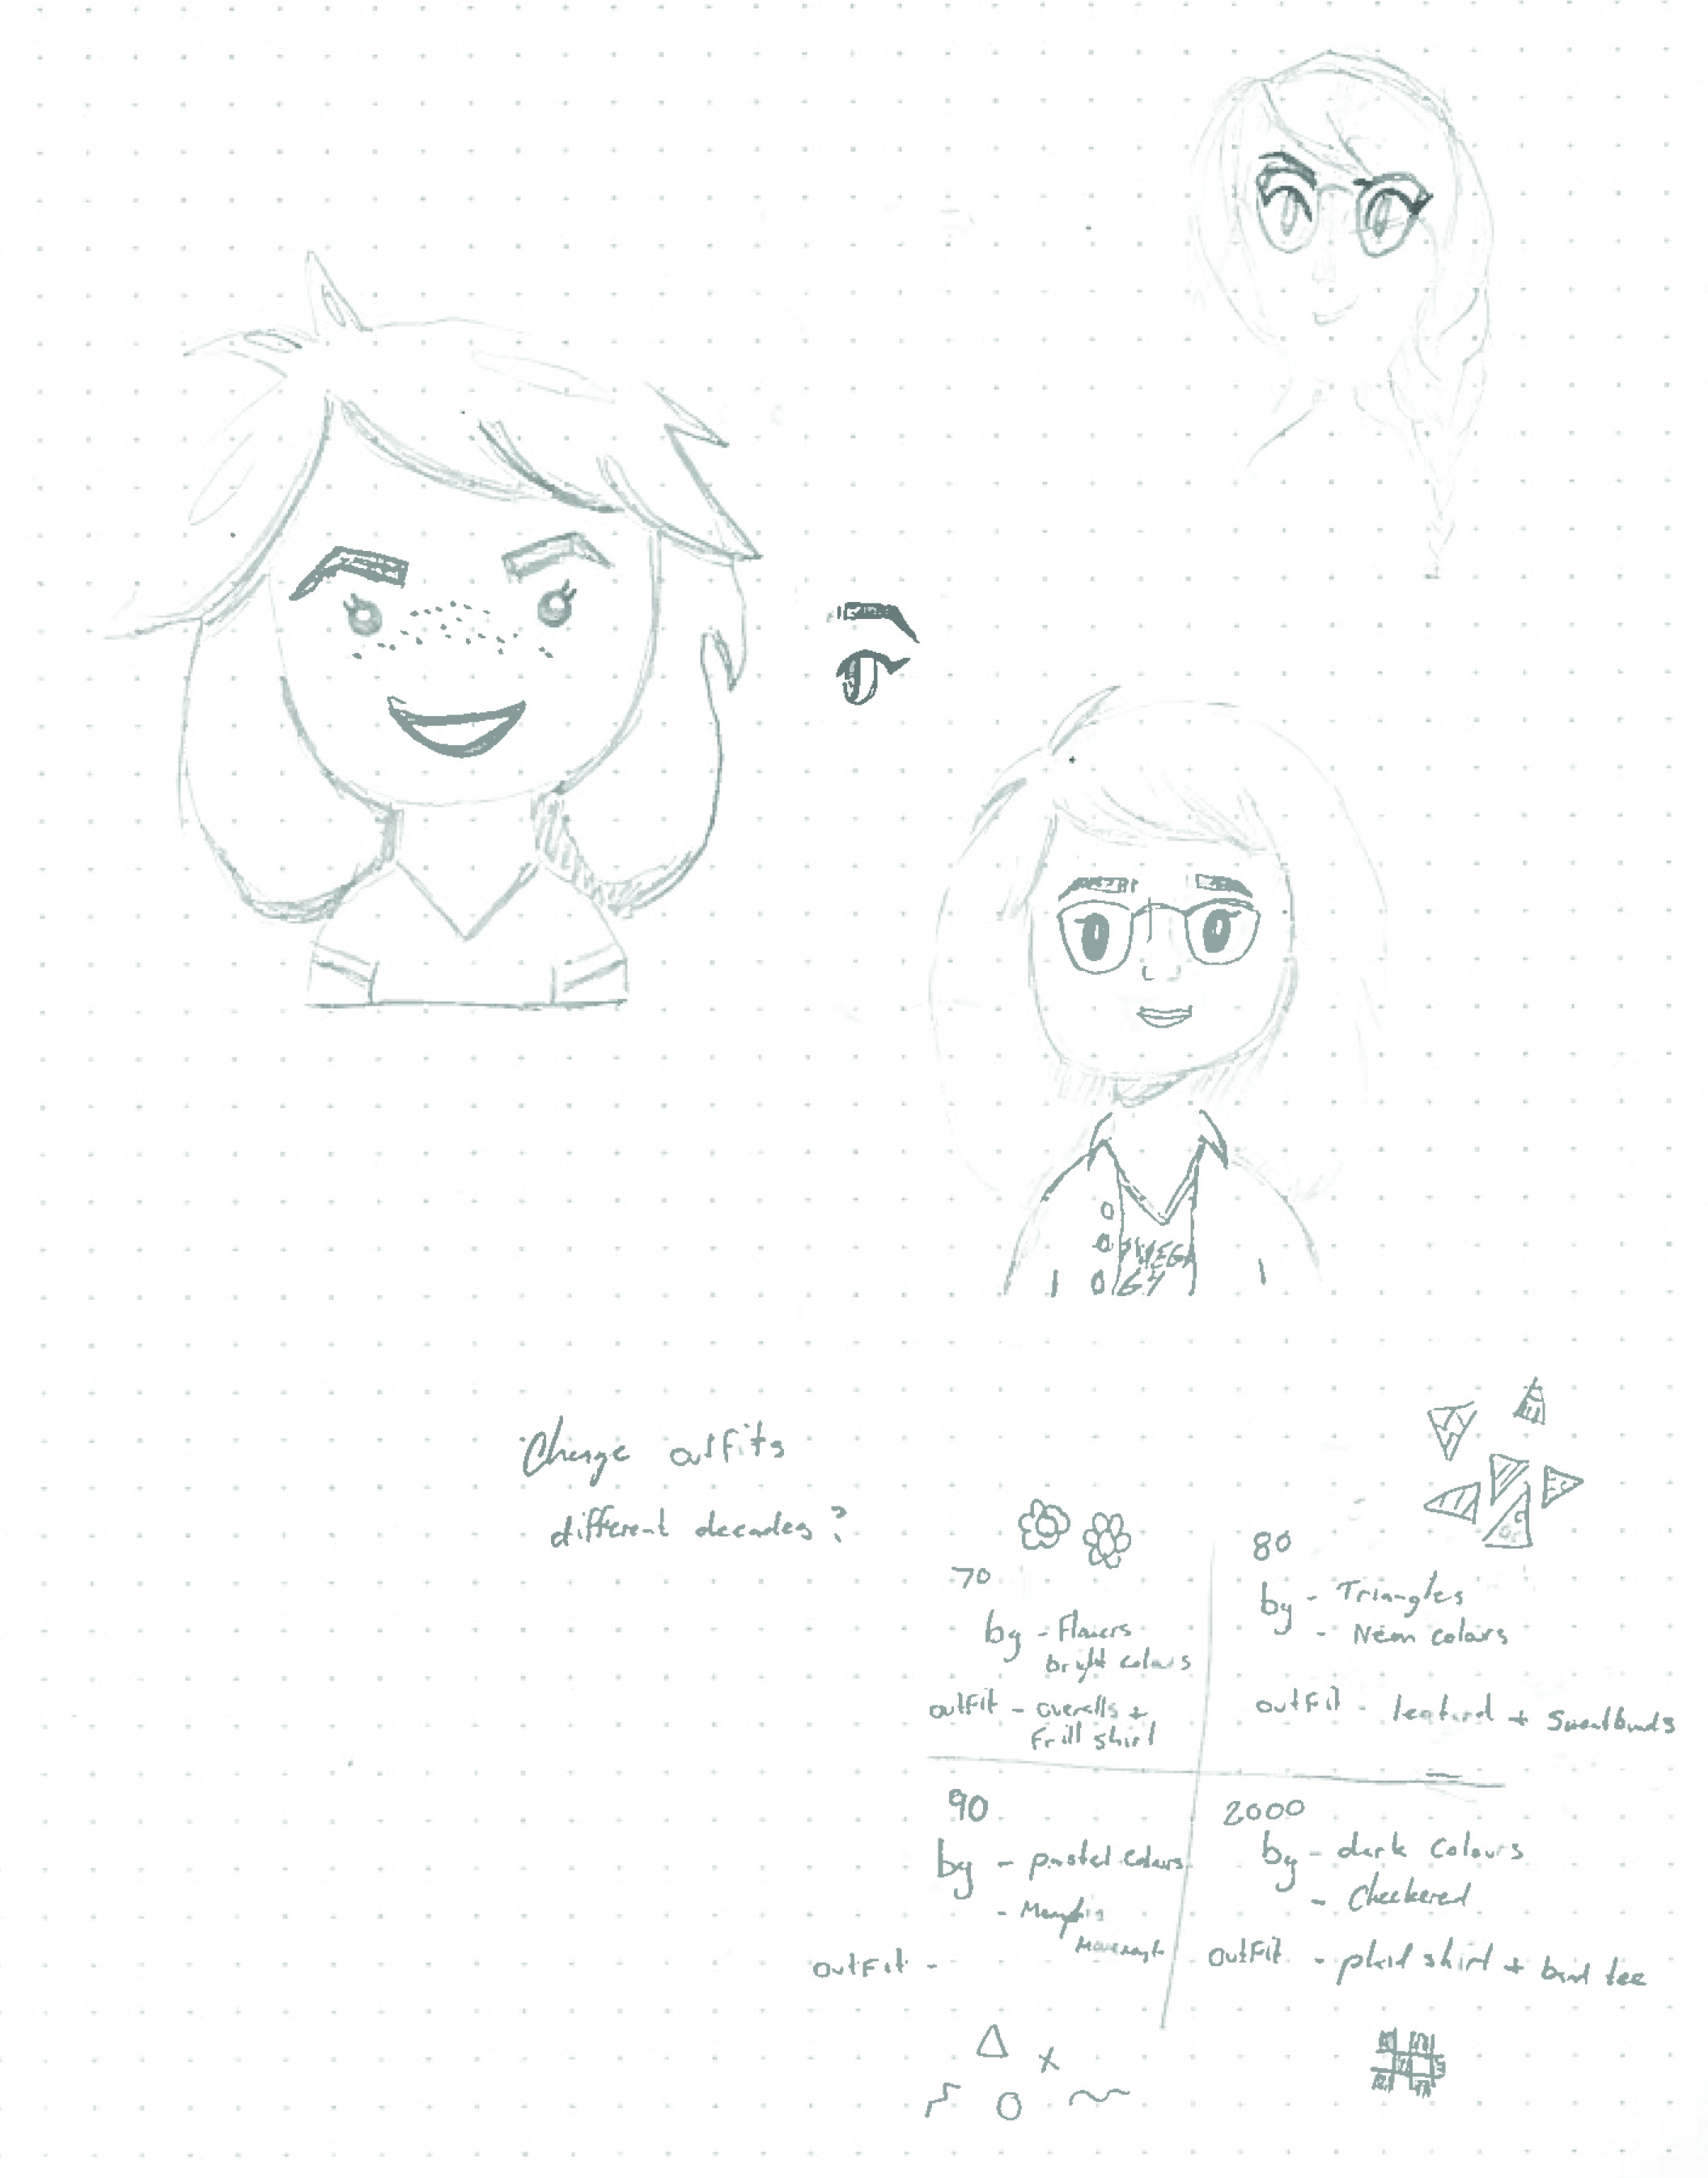 Change outfits
different decades?
70
bg - Flowers
bright colours
outfit - overalls +
Frill shirt
80
bg - Triangles
- Neon colours
outfit - leotard + Sweatbands
90
bg - pastel colours
- Memphis
Movement
outfit -
2000
bg - dark colours
- Checkered
outfit - plaid shirt + band tee